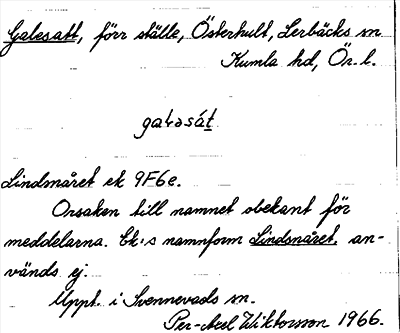 Galesatt, förr ställe, Österhult, Lerbäcks sn
Kumla hd, Ör. l.
galəsát
Lindsmåret ek 9F6e.
Orsaken till namnet obekant för
meddelarna. Ek:s namnform Lindsnåret, an-
vänds ej.
Uppt. i Svennevads sn.
Per-Axel Wiktorsson 1966.